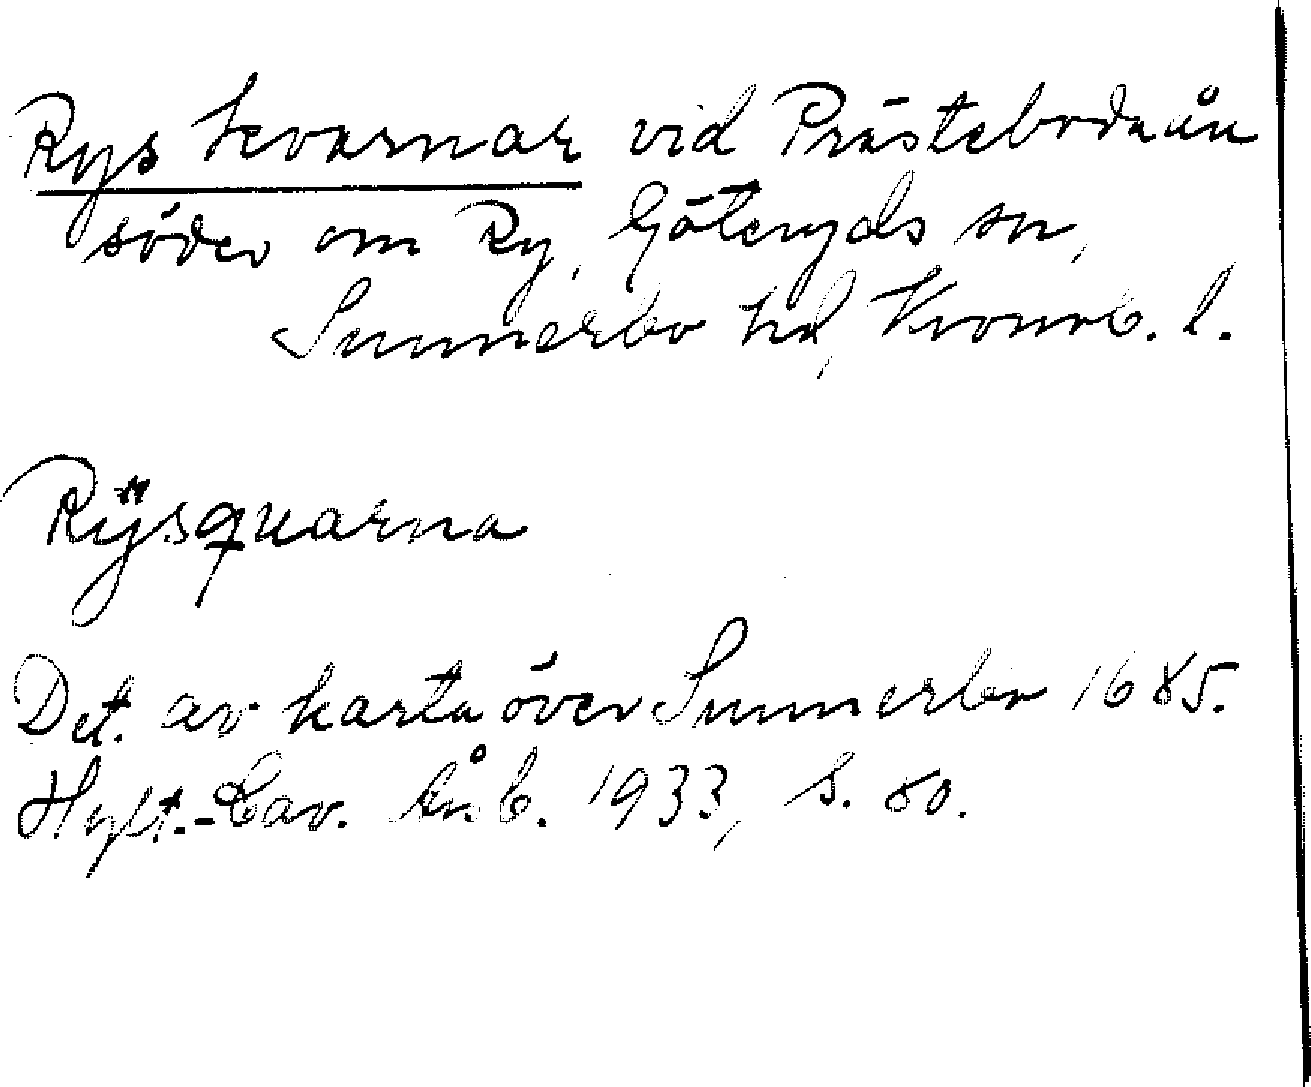 Rys kvarnar vid Prästebodaån
söder om Ry, Göteryds sn,
Sunnerbo hd, Kronob. l.
Rÿsquarna
Det. av karta över Sunnerbo 1685.
Hylt.-Cav. Årsb. 1933, s. 80.